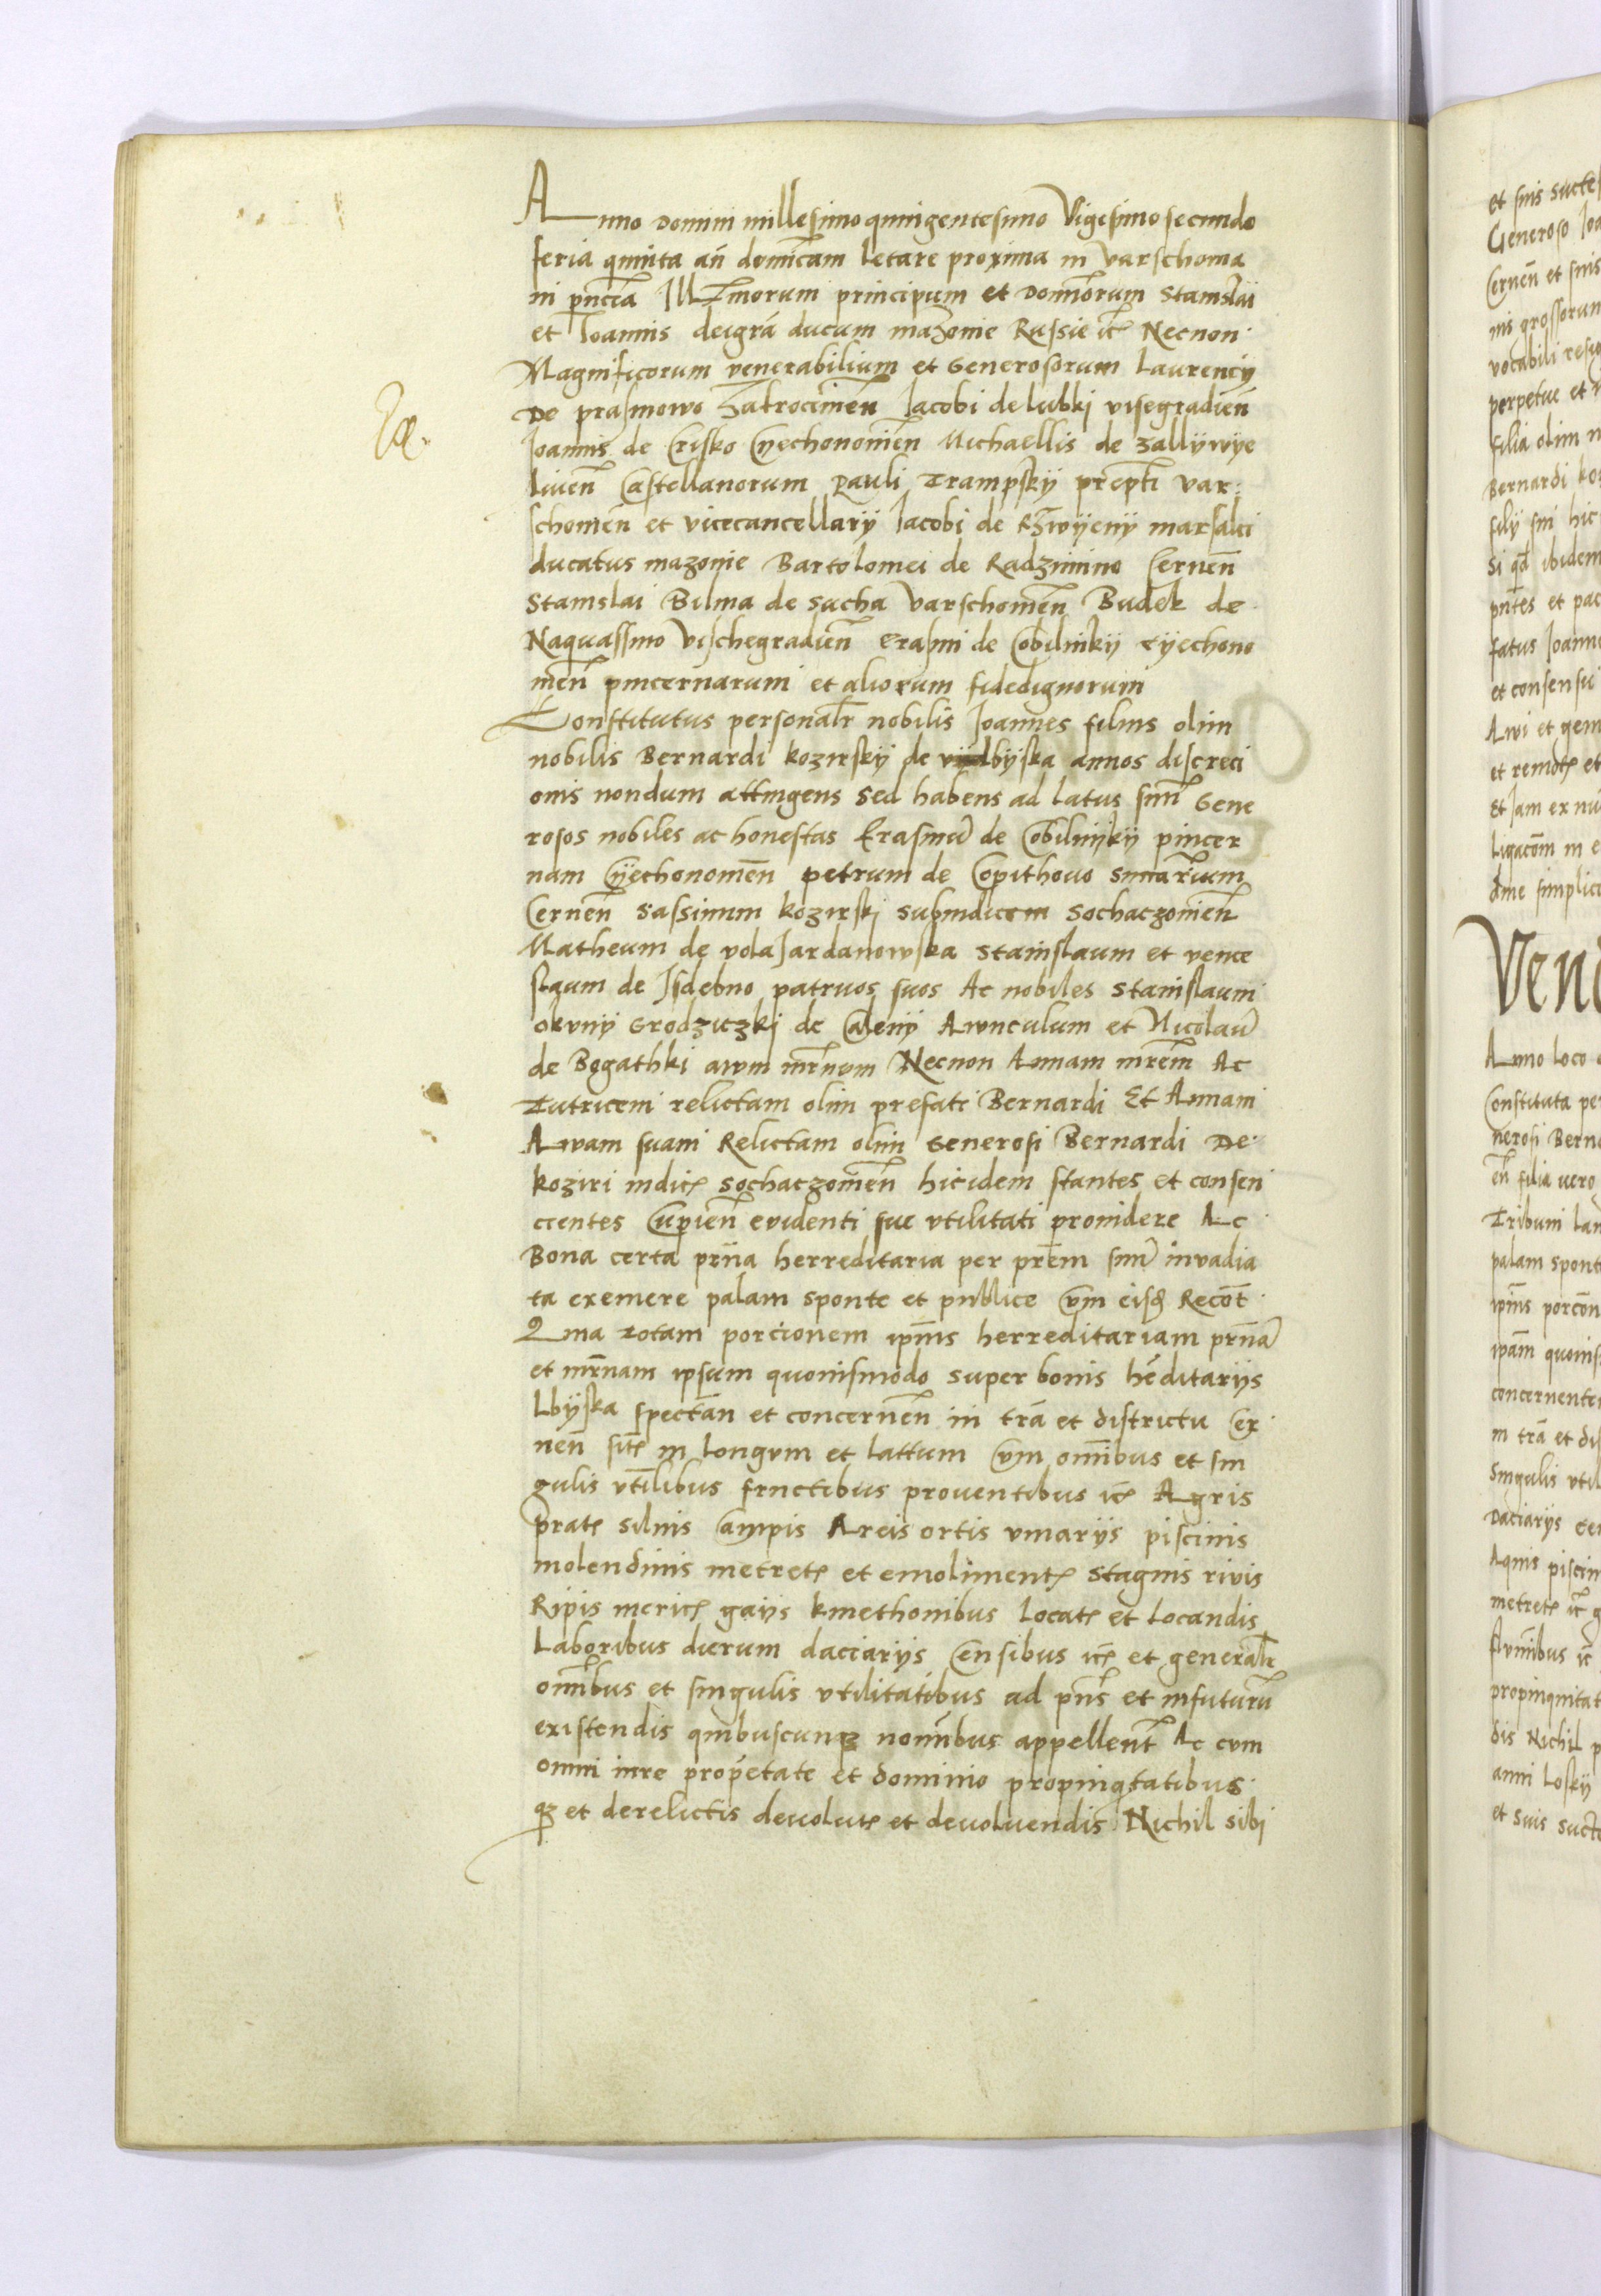 Anno Domini millesimo quingentesimo Vigesimo secundo
feria quinta añ domĩcam letare proxima in varschouia
in pñcia Ill̃Imorum principum et Domĩorum Stanislai
et Ioannis deigrã ducum mazouie Russie ic̃ Necnon
Magnificorum venerabilium et Generosorum Laurencij
De prasmowo Zatrocimeñ Jacobi de lubkj visegradieñ
Joannis de Crisko Cyechonouieñ Michaellis de zallywye
liueñ Castellanorum Pauli Trampskÿ prepti var:
schouieñ et vicecancellarÿ Jacobi de kzwyenÿ marsalci
ducatus mazouie Bartolomei de Radzimino Cerneñ
Stanislai Bilma de sucha varschouieñ Budek de
Naquassino vischegradieñ erasmi de Cobilnikÿ cyechono
uieñ pincernarum et aliorum fidedignorum
Constitutus personalr̃ nobilis Joannes filius olim
nobilis Bernardi kozirskÿ de lbÿska annos discreci
onis nondum attingens Sed habens ad latus suũ Gene
rosos nobiles ac honestas Erasmũ de Cobilnÿkÿ pincer
nam Cyechonouieñ petrum de Copithouo
Cerneñ Sassinum kozirskj subiudicem Sochaczouieñ
Matheum de vola Jardanowska Stanislaum et vence
slaum de Jsdebno patruos suos Ac nobiles Stanislaum
okunÿ Grodziczkj de Calenÿ Awnculum et Nicolaũ
de Bogathki awm mr̃nvm Necnon Annam mr̃em Ac
Tutricem relictam olim prefati Bernardi Et Annam
Awam suam Relictam olim Generosi Bernardi De
koziri iudiĉ sochaczouieñ hicidem stantes et consen
cientes Cupieñ euidenti sue vtilitati prouidere Ac
Bona certa pr̃na herreditaria per pr̃em suũ invadia
ta exemere palam sponte et publice Cum eisdẽ Recõt
Quia totam porcionem ip̃ius herreditariam pr̃nã
et mr̃nam ipsum quouismodo super bonis hẽditarÿs
Lbÿska spectañ et concerneñ in trã et districtu Cer
neñ sit̃ in longvm et lattum Cum omĩbus et sin
gulis vtĩlibus fructibus prouentibus ic̃ Agris
prat̃ siluis Campis Areis ortis vmarÿs piscinis
molendinis metret̃ et emoliment̃ stagnis rivis
Ripis meric̃ gaÿs kmethonibus Locat̃ et Locandis
Laboribus dierum daciarÿs Censibus ic̃ et generalr̃
omĩbus et singulis vtilitatibus ad pñs et infuturũ
existendis quibuscunq3 nomĩbus appelleñt Ac cum
omni iure prop̃etate et dominio propinq̃tatibus
q3 et derelictis deuolut̃ et deuoluendis Nichil sibi
et suis
Generoso
Cerneñ et suis
vocabili
perpetue et
filia olim
Bernardi
filÿ sui hic
si qd̃ ibidem
pñtes et
fatus
et consensu
Awi et
et
Et Jam
in
Ven
Anno loco
Constituta
nerosi
eñ filia vero
Tribuni
palam
ip̃ius porcõn
ip̃am
concernente
in trã et
Singulis
Daciarÿs
Aquis
metret̃ ic̃
propinquitat
dis Nichil
anni Loskÿ
et suis